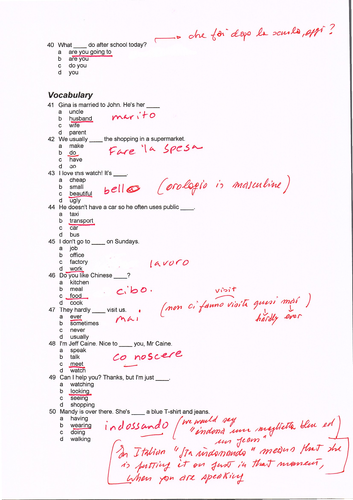 che fai dopo la scuola, oggi?
40 What ____ do after school today?
a are you going to
b are you
c do you
d you
Vocabulary
41 Gina is married to John. He's her ____
a uncle
b husband marito
c wife
d parent
42 We usually ____ the shopping in a supermarket.
a make
b do Fare la spesa
c have
d on
43 I love this watch! It's ____.
a cheap
b small
c beautiful bello (orologio is masculine)
d ugly
44 He doesn't have a car so he often uses public ____.
a taxi
b transport
c car
d bus
45 I don't go to ____ on Sundays.
a job
b office
c factory
d work lavoro
46 Do you like Chinese ____?
a kitchen
b meal
c food cibo.
d cook
visit
47 They hardly ____ visit us. (non ci fanno visita quasi mai)
a ever mai
b sometimes hardly ever
c never
d usually
48 I'm Jeff Caine. Nice to ____ you, Mr Caine.
a speak
b talk conoscere
c meet
d watch
49 Can I help you? Thanks, but I'm just ____.
a watching
b looking
c seeing
d shopping
50 Mandy is over there. She's ____ a blue T-shirt and jeans.
a having
b wearing indossando (we would say
c doing "indossa una maglietta blu ed
d walking un jeans".
In Italian "sta indossando" means that she
is putting it on just in that moment,
when you are speaking